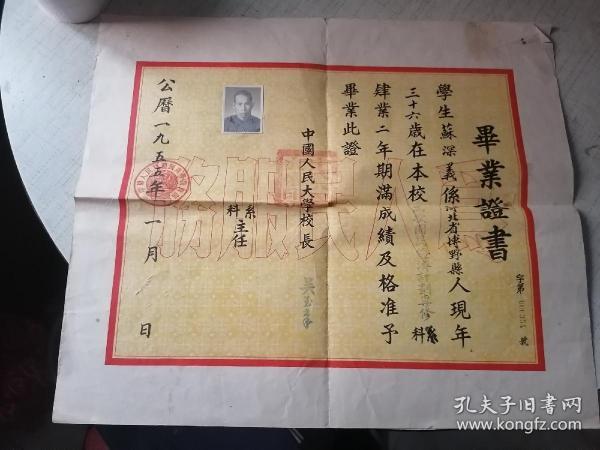 畢業證書
字第 號
學生蘇深義係河北省博野縣人現年
三十六歲在本校國民經濟計劃專修科
肄業二年期滿成績及格准予
畢業此證
中國人民大學校長
吳玉章
系科主任
公曆一九五五年一月 日
為人民服務
孔夫子旧书网
www.kongfz.com